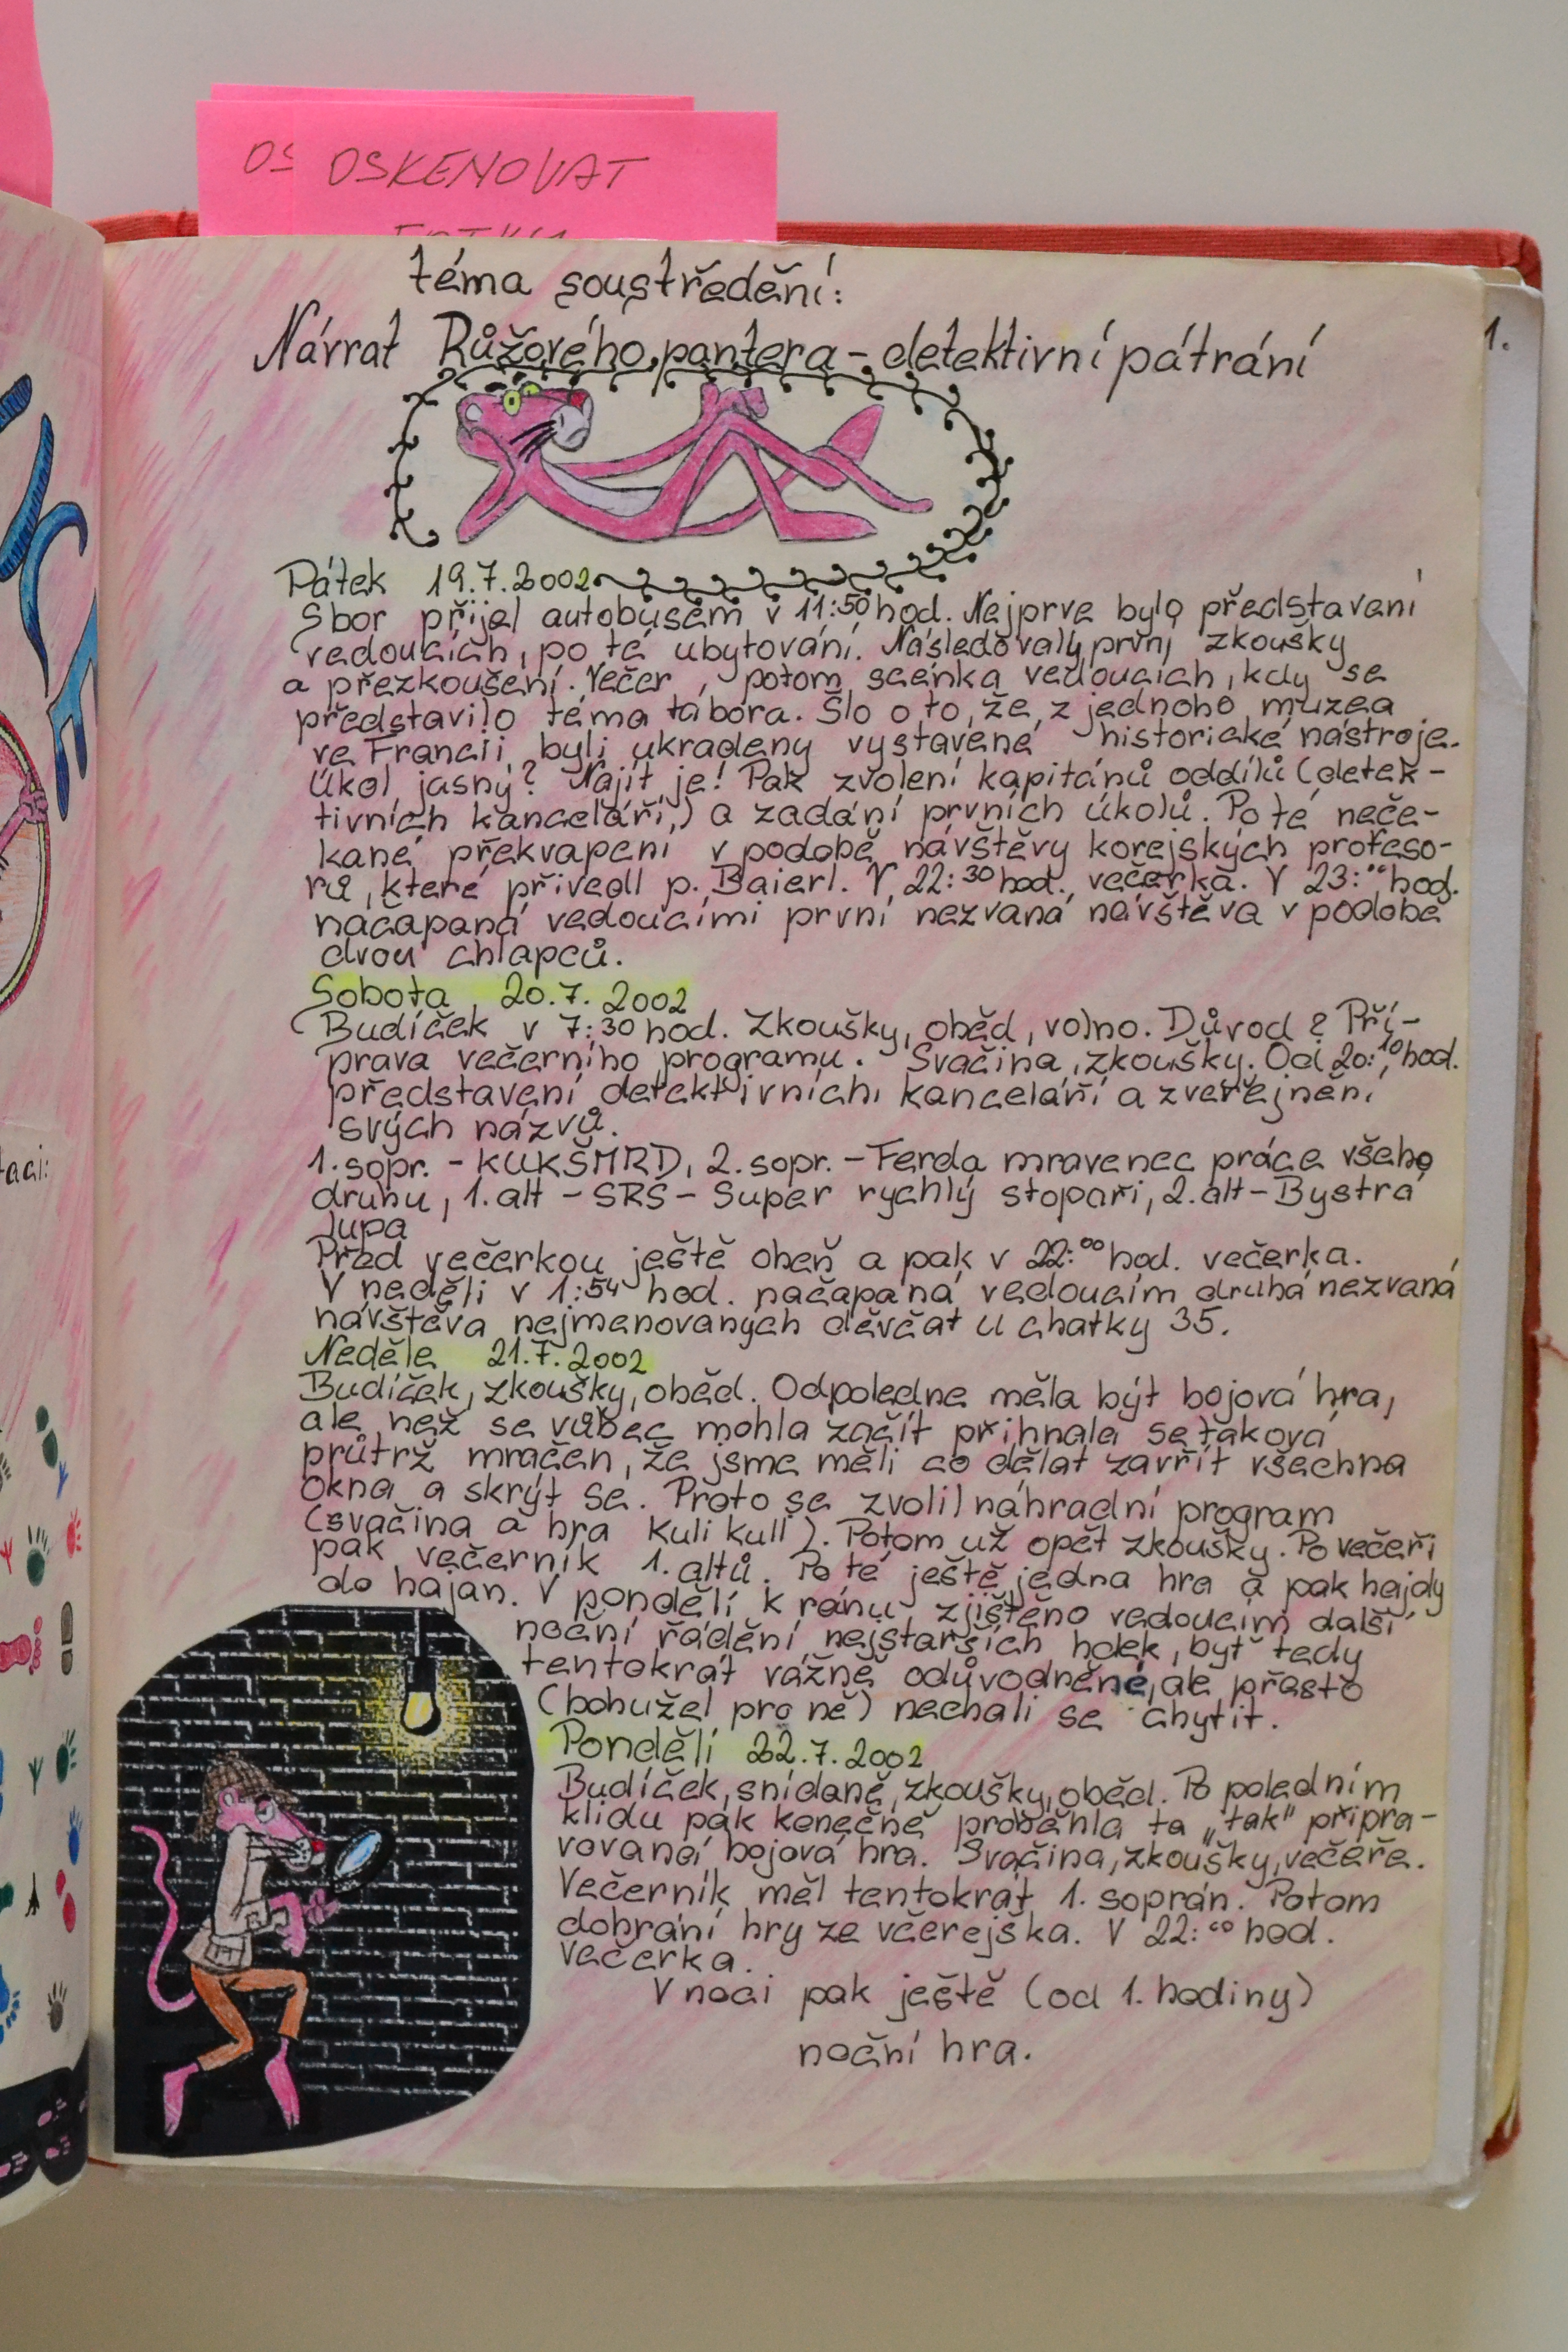 OS OSKENOVAT
téma soustředění:
Návrat Růžového pantera - detektivní pátrání
1.
Pátek 19.7.2002
Sbor přijel autobusem v 11:50 hod. Nejprve bylo představení
vedoucích, po té ubytování. Následovaly první zkoušky
a přezkoušení. Večer, potom scénka vedoucích, kdy se
představilo téma tábora. Šlo o to, že z jednoho muzea
ve Francii byli ukradeny vystavené historické nástroje.
Úkol jasný? Najít je! Pak zvolení kapitánů oddílů (detek-
tivních kanceláří,) a zadání prvních úkolů. Po té neče-
kané překvapení v podobě návštěvy korejských profeso-
rů, které přivedl p. Baierl. V 22:30 hod. večerka. V 23:00 hod.
načapaná vedoucími první nezvaná návštěva v podobě
dvou chlapců.
Sobota, 20.7. 2002
Budíček v 7:30 hod. Zkoušky, oběd, volno. Důvod? Pří-
prava večerního programu. Svačina, zkoušky. Od 20:10 hod.
představení detektivních kanceláří a zveřejnění
svých názvů.
1. sopr. - KUKŠMRD, 2. sopr. - Ferda mravenec práce všeho
druhu, 1. alt - SRS - Super rychlý stopaři, 2. alt - Bystrá
lupa
Před večerkou ještě oheň a pak v 22:00 hod. večerka.
V neděli v 1:54 hod. načapaná vedoucím druhá nezvaná
návštěva nejmenovaných děvčat u chatky 35.
Neděle 21.7.2002
Budíček, zkoušky, oběd. Odpoledne měla být bojová hra,
ale než se vůbec mohla začít přihnala se taková
průtrž mračen, že jsme měli co dělat zavřít všechna
okna a skrýt se. Proto se zvolil náhradní program
(svačina a hra Kuli kuli). Potom už opět zkoušky. Po večeři
pak večerník 1. altů. Po té ještě jedna hra a pak hajdy
do hajan. V pondělí k ránu zjištěno vedoucím další
noční řádění nejstarších holek, byť tedy
tentokrát vážně odůvodněné, ale přesto
(bohužel pro ně) nechali se chytit.
Pondělí 22.7.2002
Budíček, snídaně, zkoušky, oběd. Po poledním
klidu pak konečně proběhla ta „tak" připra-
vovaná bojová hra. Svačina, zkoušky, večeře.
Večerník měl tentokrát 1. soprán. Potom
dohrání hry ze včerejška. V 22:00 hod.
večerka.
V noci pak ještě (od 1. hodiny)
noční hra.